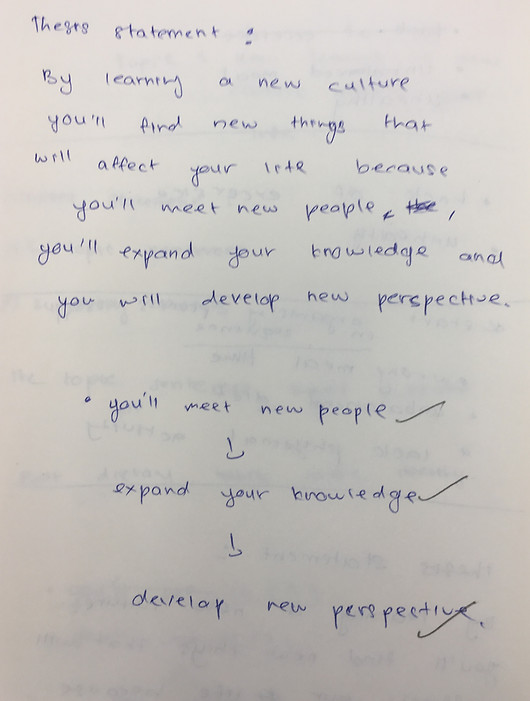 Thesis statement :
By learning a new culture
you'll find new things that
will affect your life because
you'll meet new people, the,
you'll expand your knowledge and
you will develop new perspective.
• you'll meet new people ✓
↓
expand your knowledge ✓
↓
develop new perspective. ✓